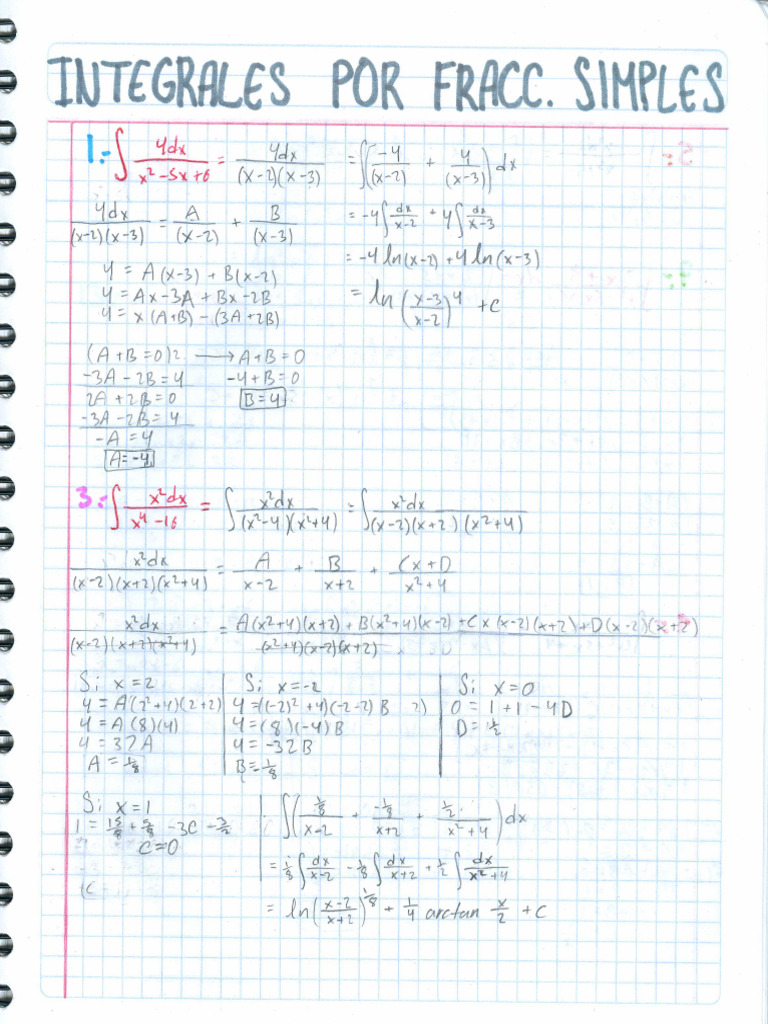 INTEGRALES POR FRACC. SIMPLES
1.- ∫ 4dx/(x²-5x+6) = 4dx/((x-2)(x-3)) = ∫(-4/(x-2) + 4/(x-3))dx
4dx/((x-2)(x-3)) = A/(x-2) + B/(x-3)
= -4∫dx/(x-2) + 4∫dx/(x-3)
= -4 ln(x-2) + 4 ln(x-3)
= ln((x-3)/(x-2))⁴ + C
4 = A(x-3) + B(x-2)
4 = Ax-3A + Bx-2B
4 = x(A+B) - (3A+2B)
(A+B=0)2 → A+B=0
-3A-2B=4 -4+B=0
2A+2B=0 B=4
-3A-2B=4
-A=4
A=-4
3.- ∫ x²dx/(x⁴-16) = ∫ x²dx/((x²-4)(x²+4)) = ∫ x²dx/((x-2)(x+2)(x²+4))
x²dx/((x-2)(x+2)(x²+4)) = A/(x-2) + B/(x+2) + (Cx+D)/(x²+4)
x²dx/((x-2)(x+2)(x²+4)) = (A(x²+4)(x+2) + B(x²+4)(x-2) + Cx(x-2)(x+2) + D(x-2)(x+2))/((x²+4)(x-2)(x+2))
Si x=2
4 = A(2²+4)(2+2)
4 = A(8)(4)
4 = 32A
A = 1/8
Si x=-2
4 = ((-2)²+4)(-2-2)B
4 = (8)(-4)B
4 = -32B
B = -1/8
Si x=0
0 = 1+1-4D
D = 1/2
Si x=1
1 = 15/8 + 5/8 - 3C - 3/2
C=0
(C-
∫((1/8)/(x-2) + (-1/8)/(x+2) + (1/2)/(x²+4))dx
= 1/8∫dx/(x-2) - 1/8∫dx/(x+2) + 1/2∫dx/(x²+4)
= ln((x-2)/(x+2))^(1/8) + 1/4 arctan x/2 + C